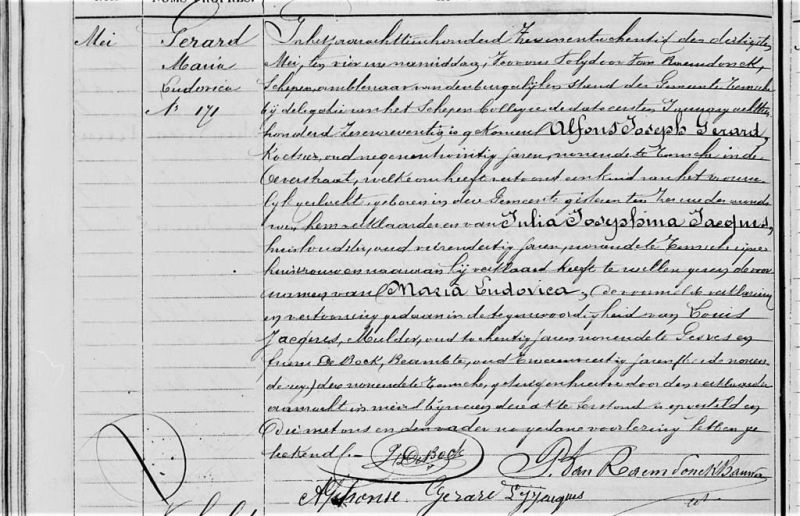 NOMS PROPRES.
Mei
Gerard
Maria
Ludovica
N: 171
In het jaar achttien honderd zevenentachentig den dertigsten
Mei, ten vier ure namiddag, Voor ons Polydoor Van Raemdonck,
Schepen, ambtenaar van den burgerlijken Stand der Gemeente Temsche
bij delegatie van het Schepen Collegie de dato eersten January achttien
honderd is gekomen Alfons Joseph Gerard,
Koetser, oud negenentwintig jaren, wonende te Temsche in de
straat, welke ons heeft vertoond een kind van het vrouwe
lijk geslacht, geboren in deze Gemeente gisteren ten
van hem verklaarder en van Julia Josephina Jacques,
huishoudster, oud vierendertig jaren, wonende te Temsche zijne
huisvrouw en waaraan hij verklaard heeft te willen geven de voor
namen van Maria Ludovica, de verklaring
en vertooning gedaan in de tegenwoordigheid van Louis
Jacques, Mulder, oud tachentig jaren wonende te Gesves en
Frans De Bock, Beambte, oud jaren
wonende te Temsche, getuigen hiertoe door den verklaarder
en
Die met ons en den vader na gedane voorlezing hebben ge
teekend.
De Bock
P. Van Raemdonck
Alphonse Gerard L Jacques